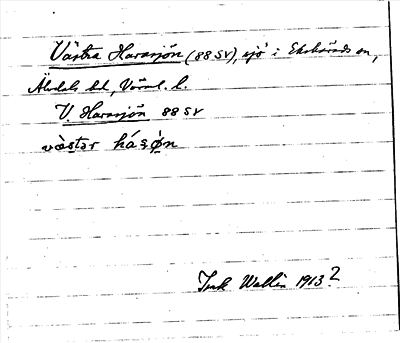 Västra Havssjön (88 SV), sjö i Ekshärads sn,
Älvdals hd, Värml. l.
V. Havssjön 88 SV
vàstər há sø̀n
Wallin 1913?